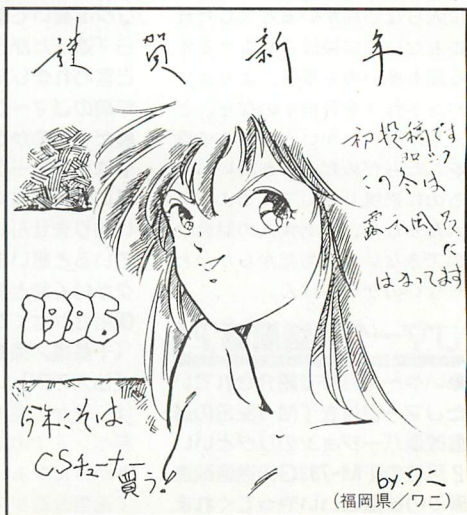 謹賀新年
初投稿です
ヨロシク
この冬は
露天風呂
に
はまってます
1995
今年こそは
CSチューナー
買う!
by.ワニ
(福岡県/ワニ)